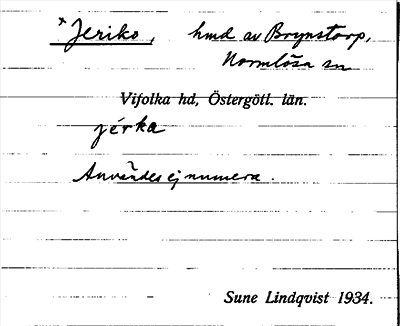 *Jeriko, hmd av Brynstorp,
Normlösa sn
Vifolka hd, Östergötl. län.
jérka
Användes ej numera.
Sune Lindqvist 1934.